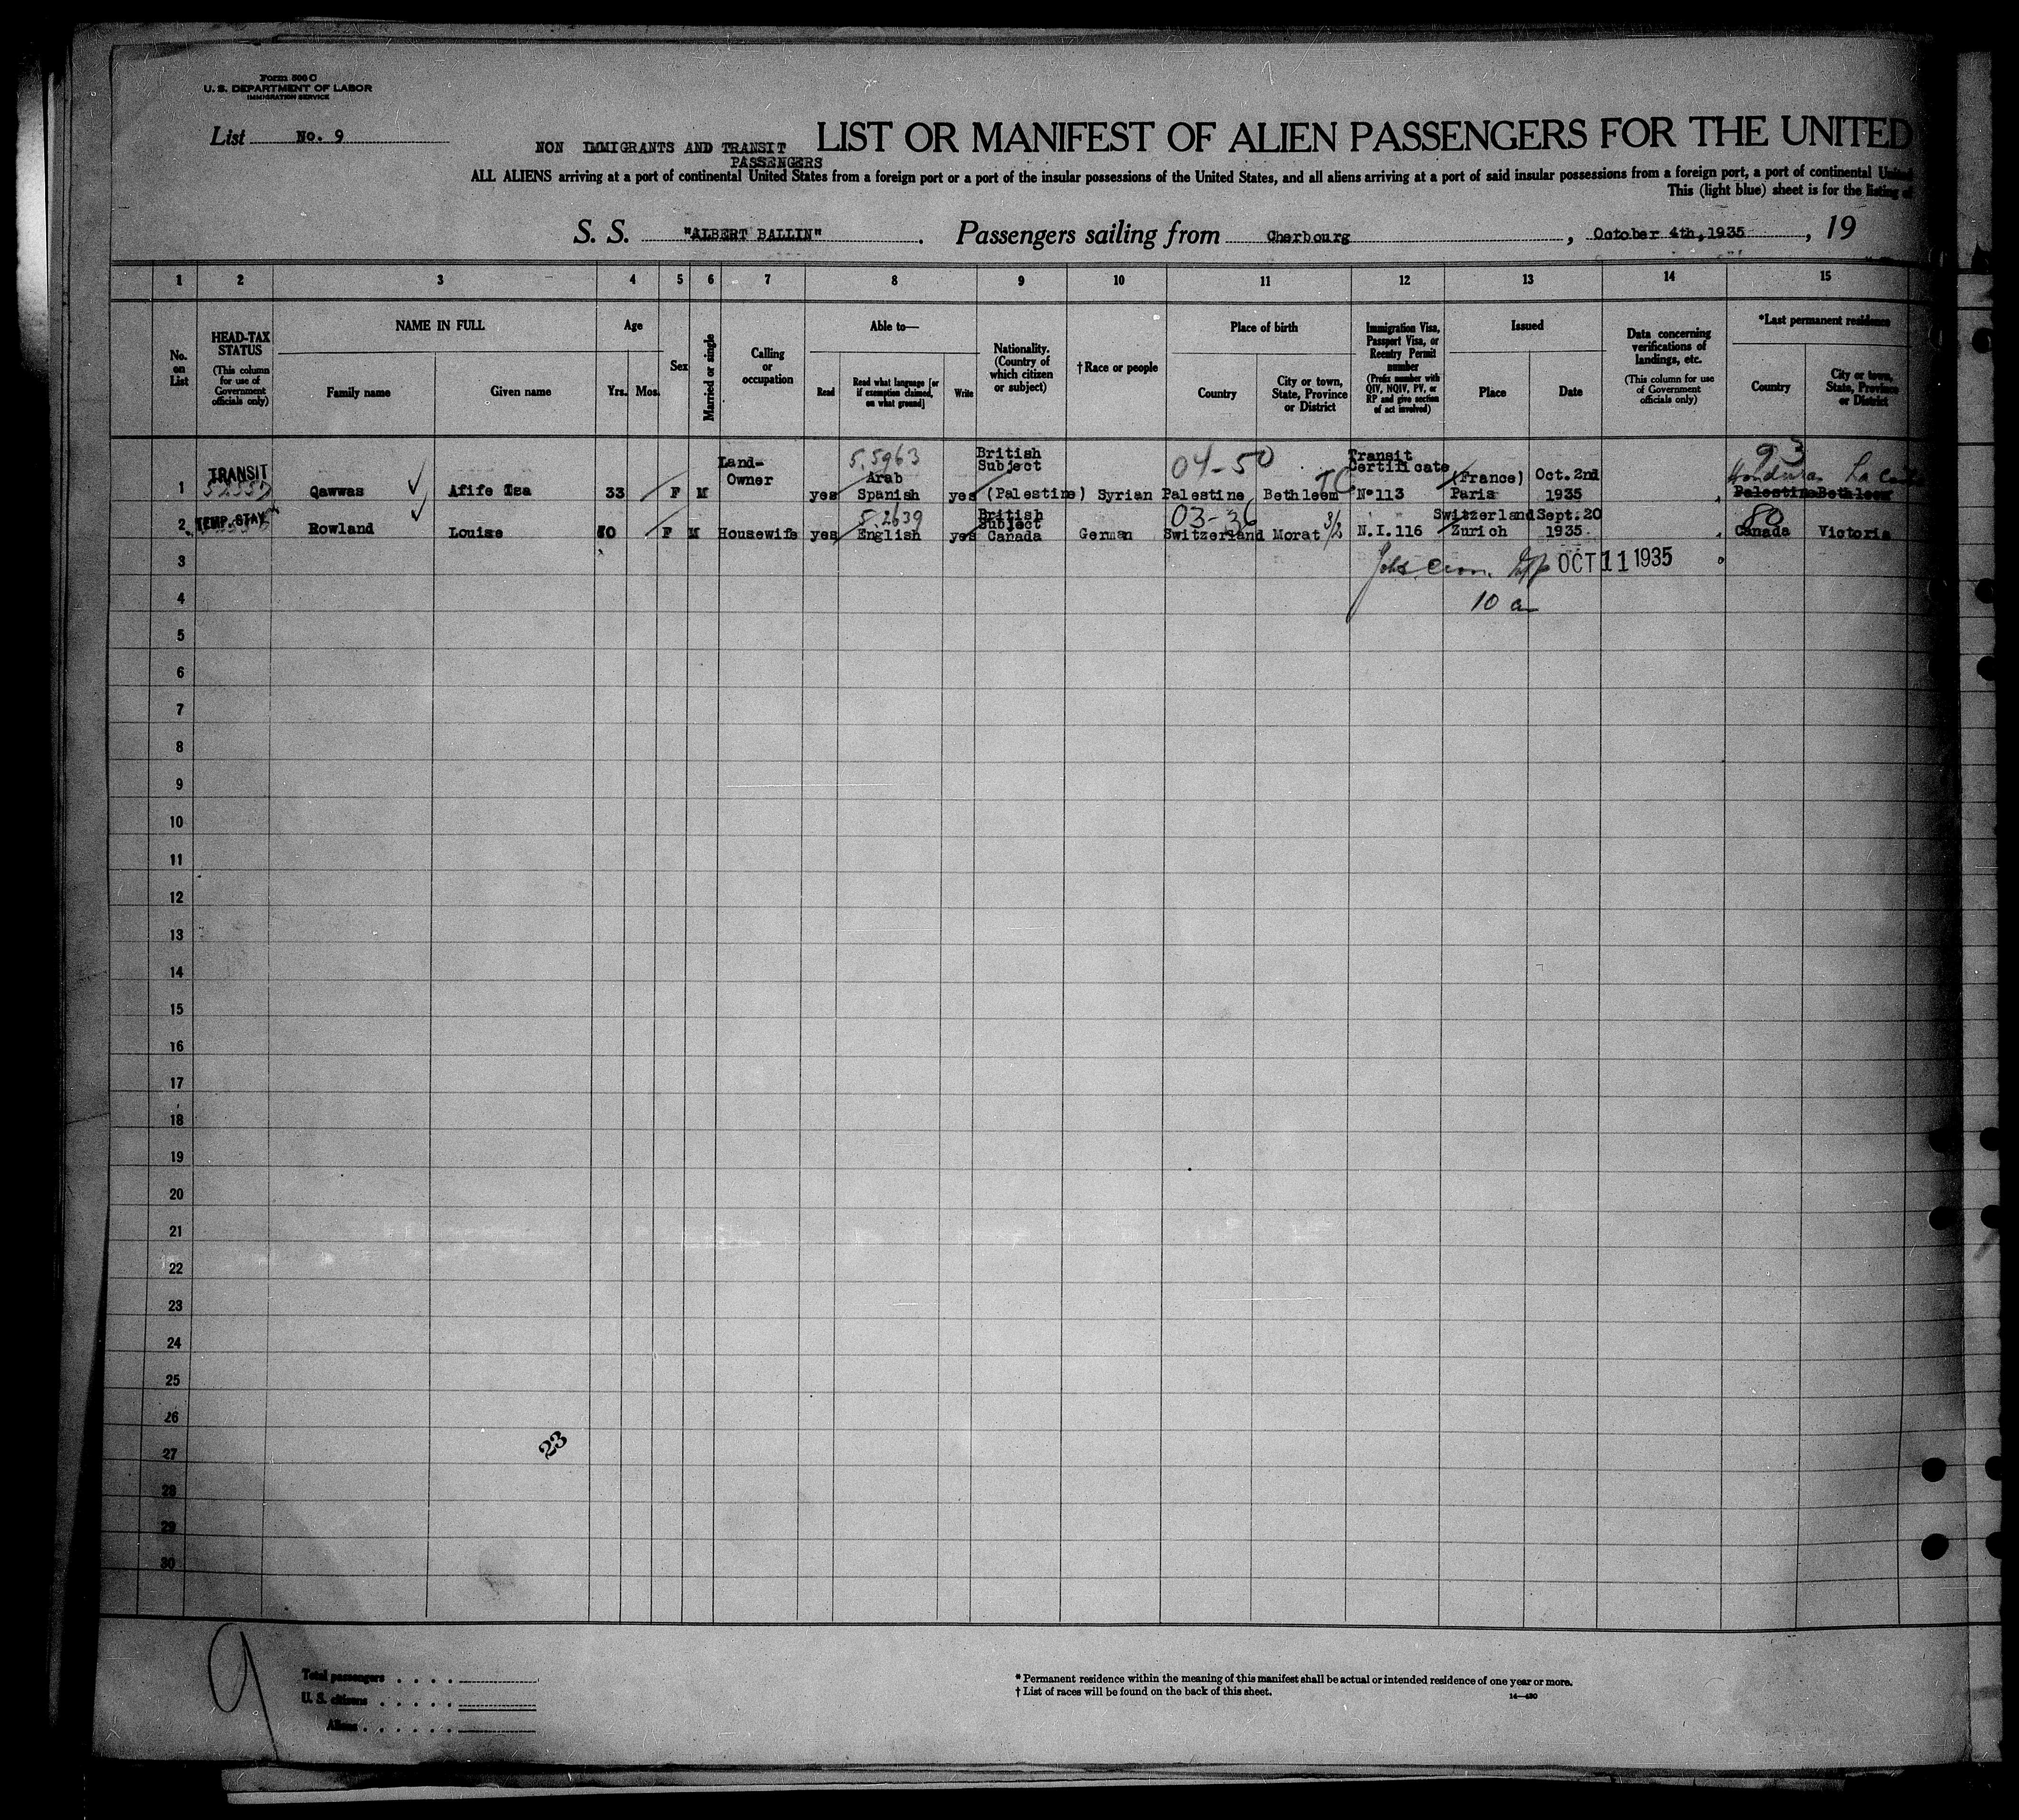 Form 500 C
U. S. DEPARTMENT OF LABOR
IMMIGRATION SERVICE
List No. 9
LIST OR MANIFEST OF ALIEN PASSENGERS FOR THE UNITED
NON IMMIGRANTS AND TRANSIT
PASSENGERS
ALL ALIENS arriving at a port of continental United States from a foreign port or a port of the insular possessions of the United States, and all aliens arriving at a port of said insular possessions from a foreign port, a port of continental United
This (light blue) sheet is for the listing of
S. S. "ALBERT BALLIN". Passengers sailing from Cherbourg, October 4th, 1935, 19
1 2 3 4 5 6 7 8 9 10 11 12 13 14 15
No. on List
HEAD-TAX STATUS (This column for use of Government officials only)
NAME IN FULL
Family name
Given name
Age
Yrs. Mos.
Sex
Married or single
Calling or occupation
Able to—
Read
Read what language [or if exemption claimed, on what ground]
Write
Nationality. (Country of which citizen or subject)
†Race or people
Place of birth
Country
City or town, State, Province or District
Immigration Visa, Passport Visa, or Reentry Permit number (Prefix number with QIV, NQIV, PV, or RP and give section of act involved)
Issued
Place
Date
Data concerning verifications of landings, etc. (This column for use of Government officials only)
*Last permanent residence
Country
City or town, State, Province or District
5.5963 04-50 TC 93
1 TRANSIT Qawwas Afife 33 F M Land-Owner yes Arab Spanish yes British Subject (Palestine) Syrian Palestine Bethleem Transit Certificate No 113 (France) Paris Oct. 2nd 1935 Honduras La Palestine Bethleem
5.2639 03-36 3/2 80
2 TEMP. STAY Rowland Louise F M Housewife yes English yes British Subject Canada German Switzerland Morat N.I. 116 Switzerland Zurich Sept. 20 1935 Canada Victoria
3 OCT 11 1935
4 10 a
5
6
7
8
9
10
11
12
13
14
15
16
17
18
19
20
21
22
23
24
25
26
27
28
29
30
23
9
Total passengers
U. S. citizens
Aliens
* Permanent residence within the meaning of this manifest shall be actual or intended residence of one year or more.
† List of races will be found on the back of this sheet.
14—430